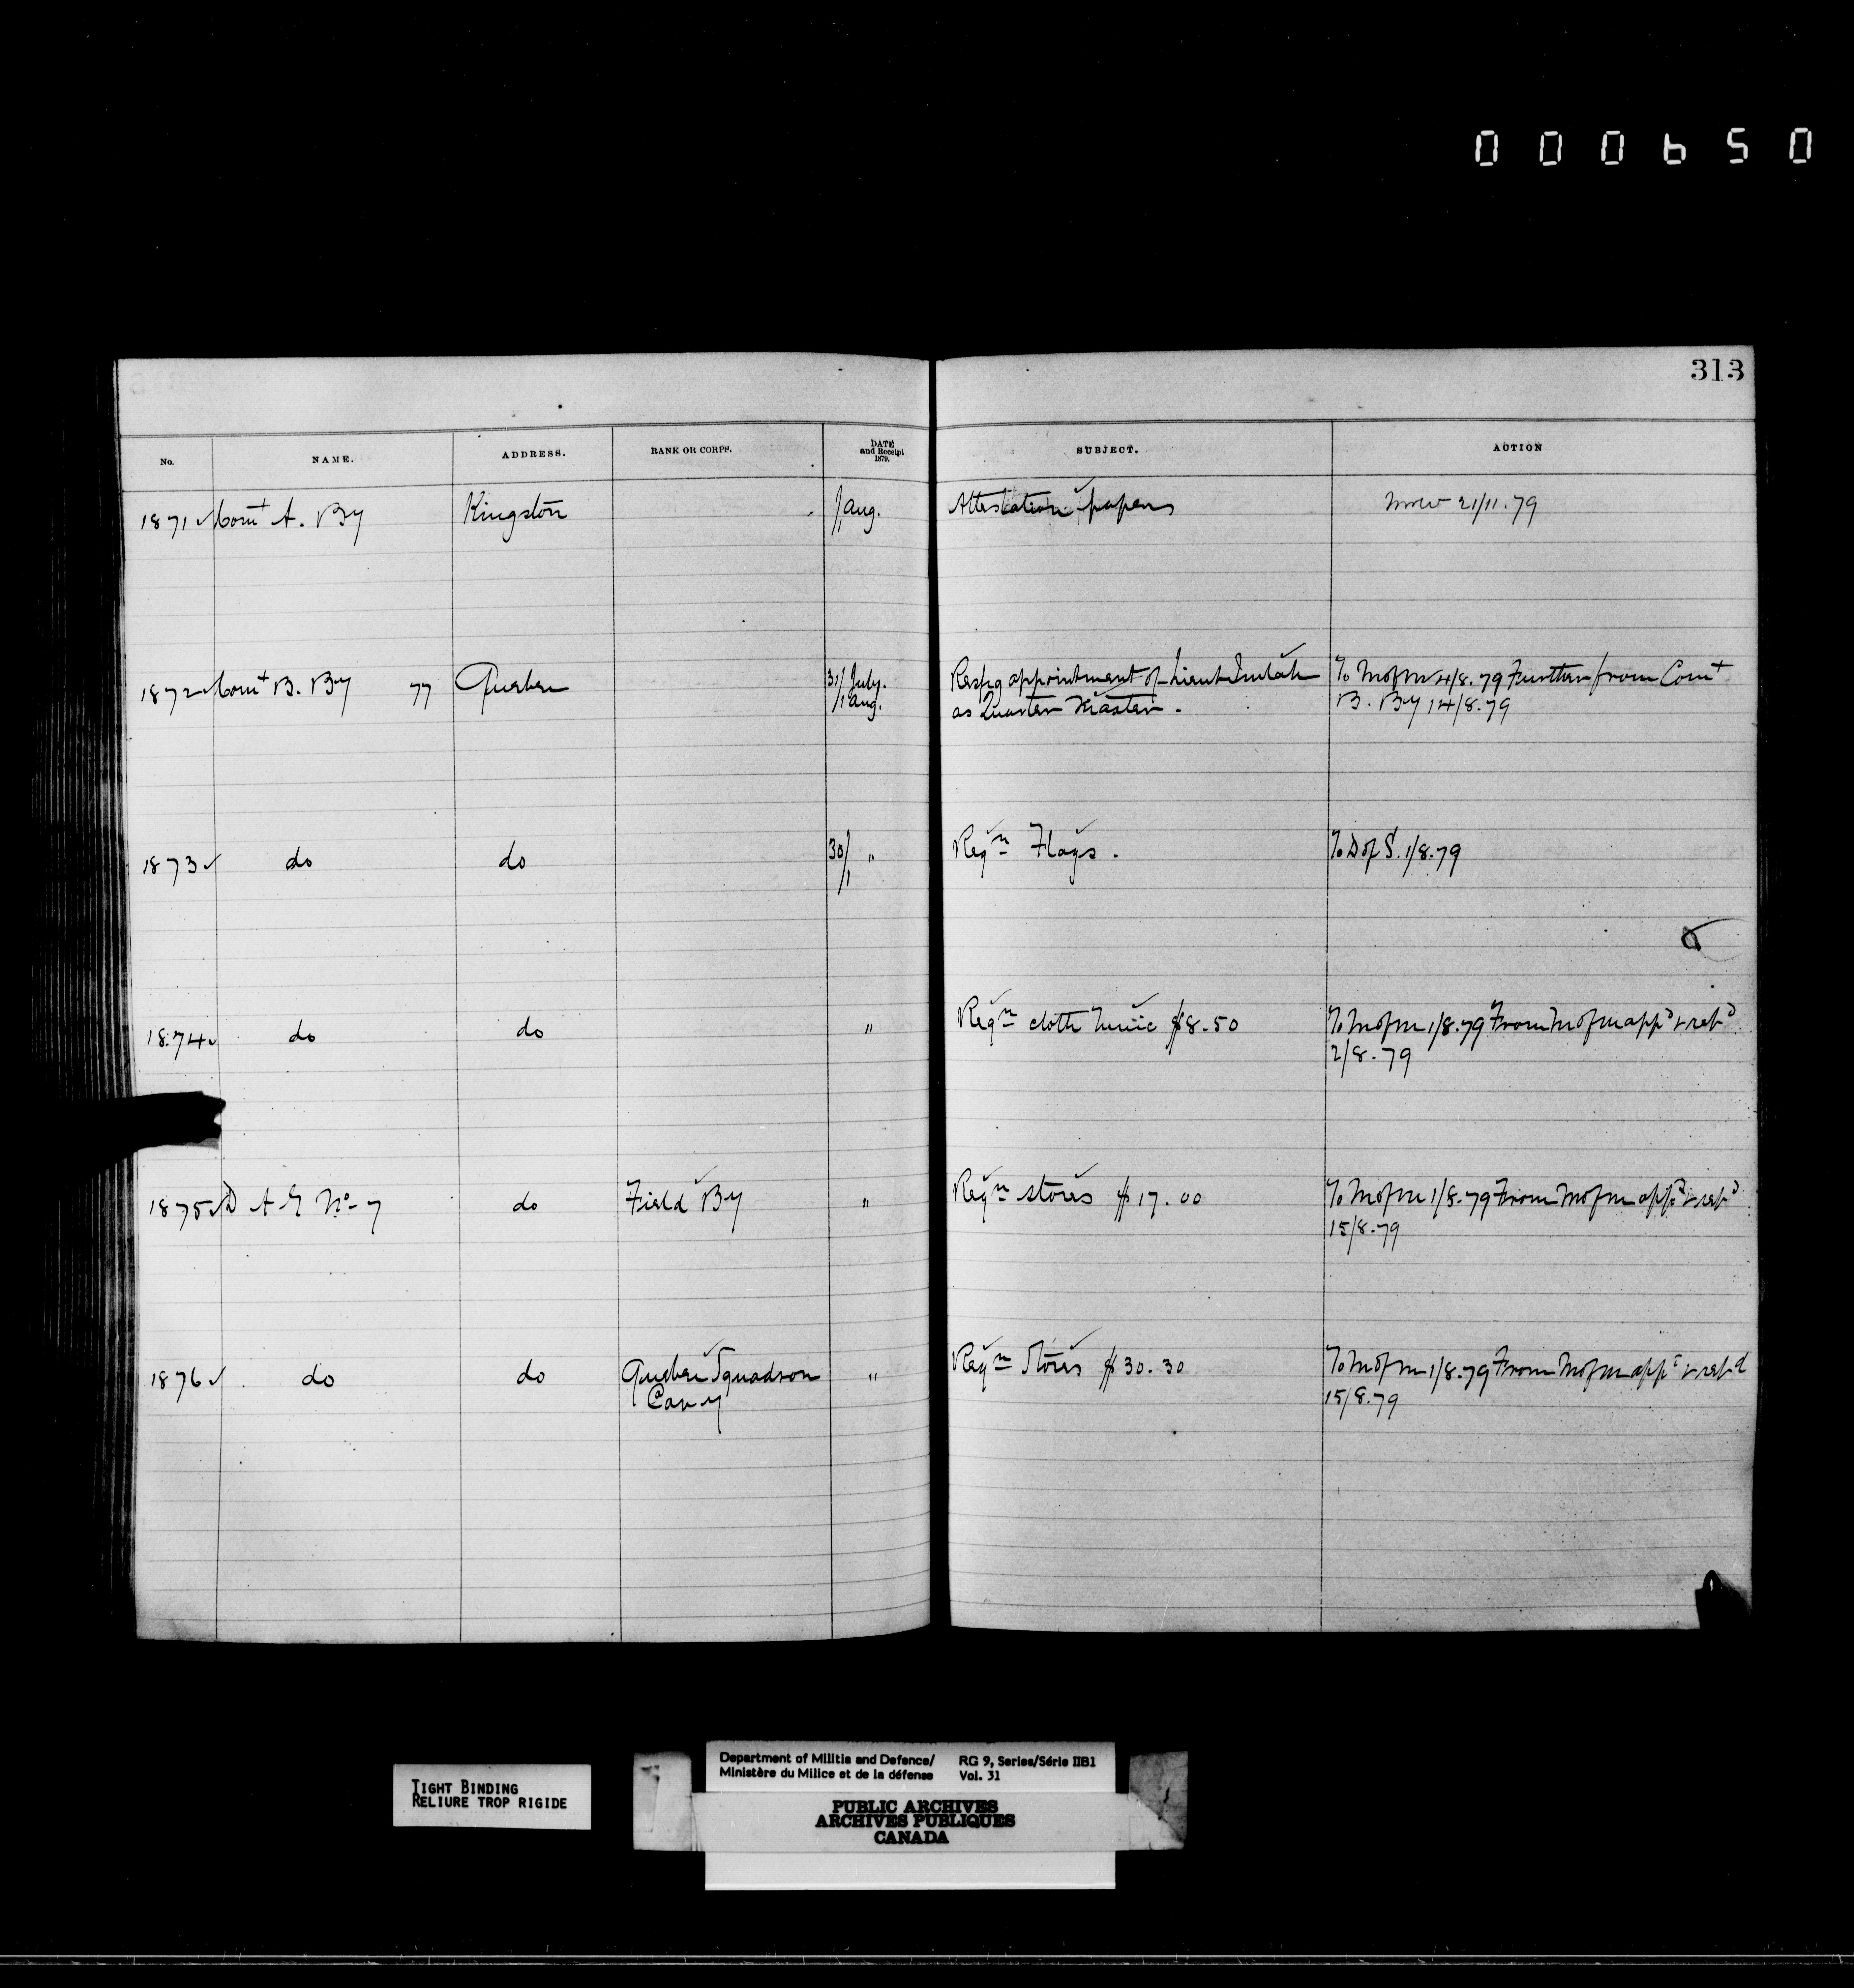 000650
313
No. NAME. ADDRESS. RANK OR CORPS. DATE and Receipt 1879. SUBJECT. ACTION
1871 ✓ Comt A. By Kingston 1/1 Aug. Attestation papers 21/11.79
1872 ✓ Comt B. By 77 Quebec 31/ July. Respg appointment of Lieut To M of M 4/8.79 Further from Comt
/1 Aug. as Quarter Master. B. By 14/8.79
1873 ✓ do do 30/1 " Reqn Flags. To D of S. 1/8.79
1874 ✓ do do " Reqn cloth Tunic $8.50 To M of M 1/8.79 From M of M appd & retd
2/8.79
1875 ✓ D A G No 7 do Field By " Reqn stores $17.00 To M of M 1/8.79 From M of M appd & retd
15/8.79
1876 ✓ do do Quebec Squadron " Reqn Stores $30.30 To M of M 1/8.79 From M of M appd & retd
Cavy 15/8.79
TIGHT BINDING
RELIURE TROP RIGIDE
Department of Militia and Defence/ RG 9, Series/Série IIB1
Ministère du Milice et de la défense Vol. 31
PUBLIC ARCHIVES
ARCHIVES PUBLIQUES
CANADA